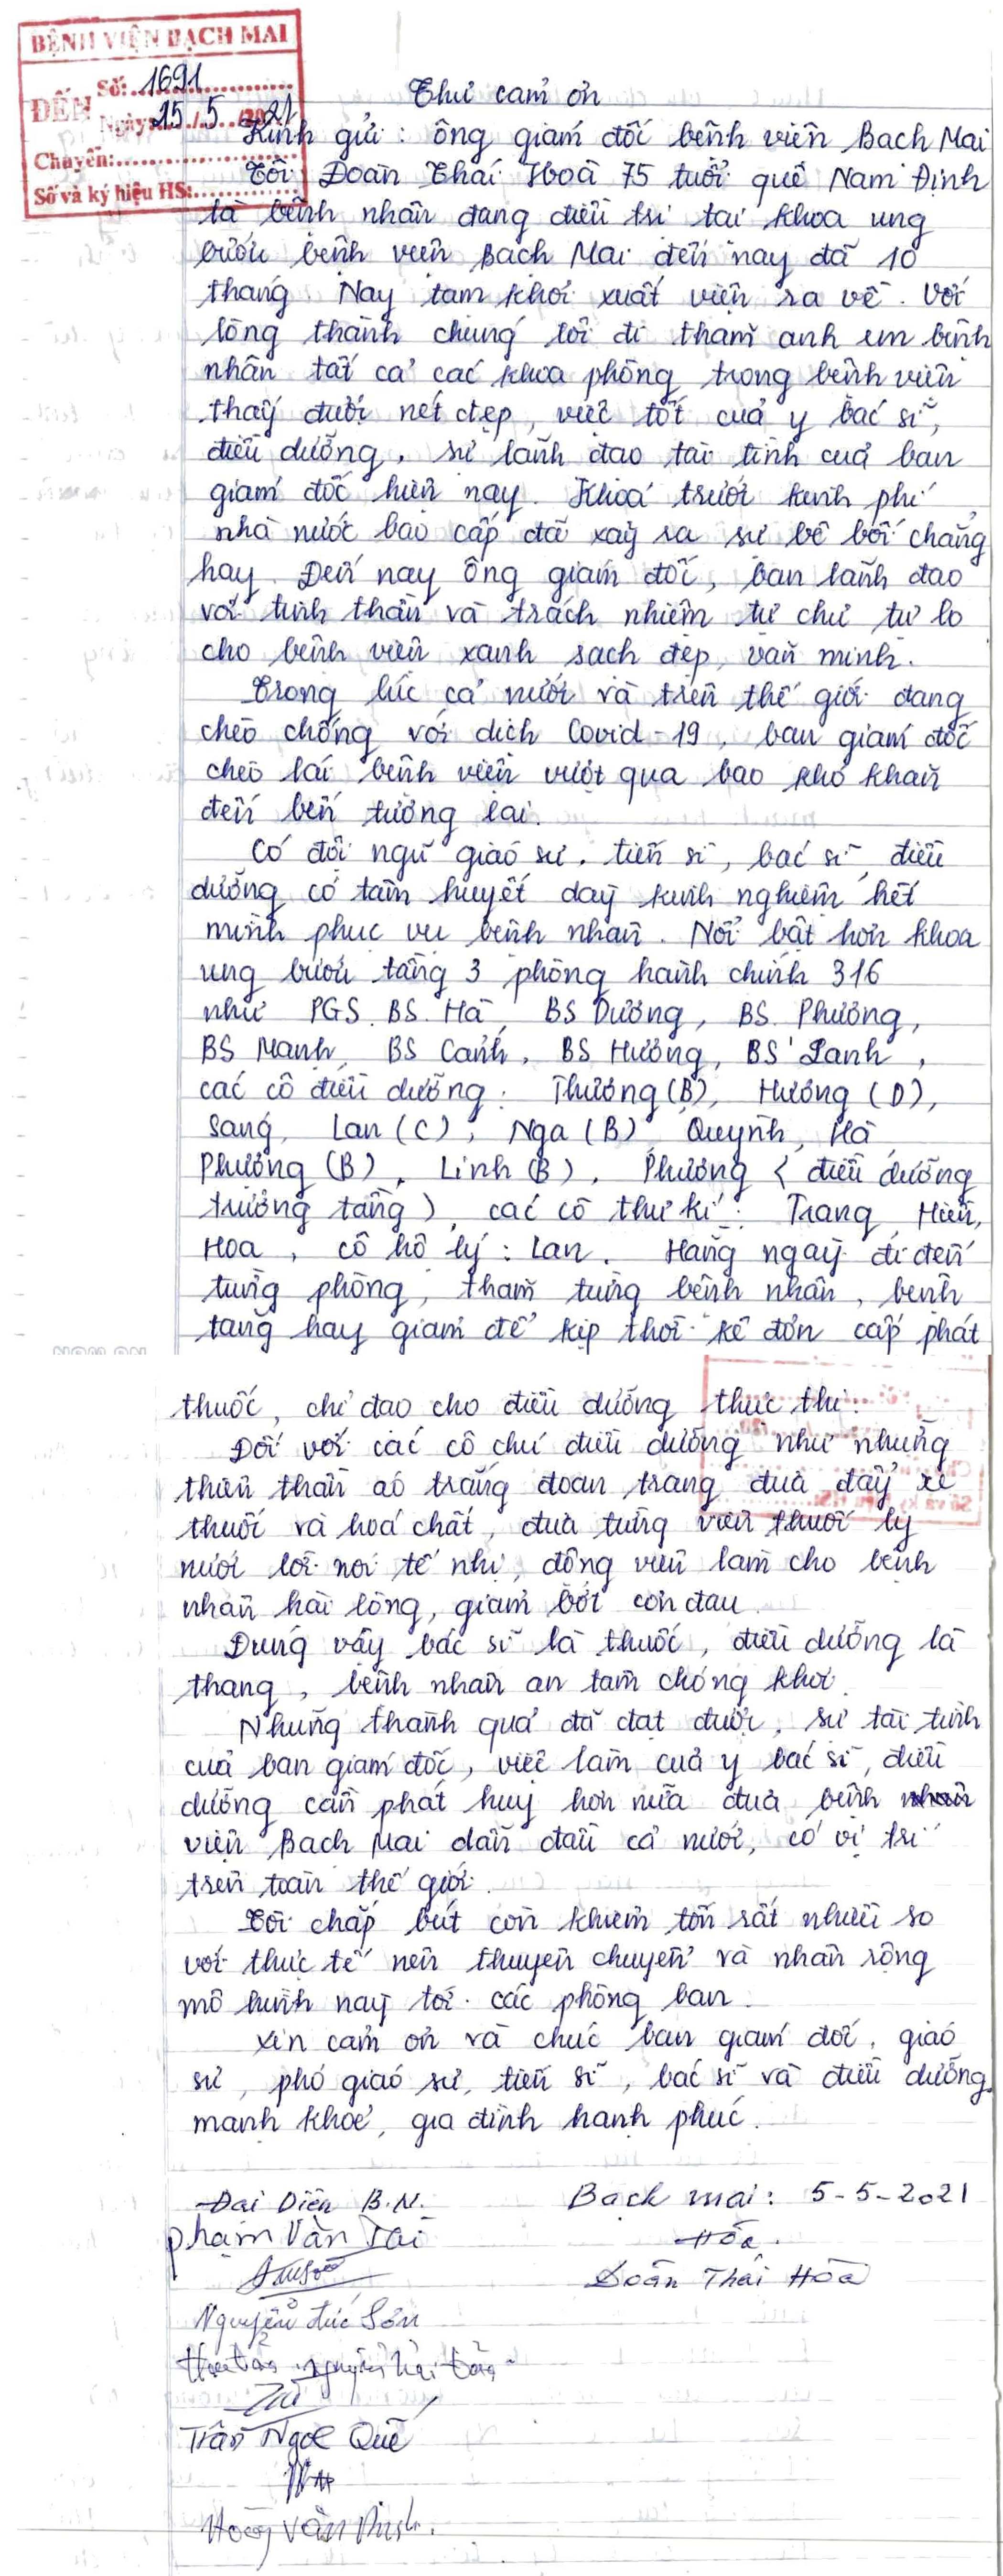 BỆNH VIỆN BẠCH MAI
Số: 1691
ĐẾN
Ngày: 15/5/2021
Chuyển:
Số và ký hiệu HS:
Thư cảm ơn
Kính gửi: ông giám đốc bệnh viện Bạch Mai
Tôi Đoàn Thái Hoà 75 tuổi quê Nam Định
là bệnh nhân đang điều trị tại khoa ung
bướu bệnh viện Bạch Mai đến nay đã 10
tháng Nay tạm khỏi xuất viện ra về. Với
lòng thành chúng tôi đi thăm anh em bệnh
nhân tất cả các khoa phòng trong bệnh viện
thấy được nét đẹp, việc tốt của y bác sĩ,
điều dưỡng, sự lãnh đạo tài tình của ban
giám đốc hiện nay. Khoá trước kinh phí
nhà nước bao cấp đã xảy ra sự bê bối chẳng
hay. Đến nay ông giám đốc, ban lãnh đạo
với tinh thần và trách nhiệm tự chủ tự lo
cho bệnh viện xanh sạch đẹp, văn minh.
Trong lúc cả nước và trên thế giới đang
chèo chống với dịch Covid-19, ban giám đốc
chèo lái bệnh viện vượt qua bao khó khăn
đến bến tương lai.
Có đội ngũ giáo sư, tiến sĩ, bác sĩ, điều
dưỡng có tâm huyết dày kinh nghiệm hết
mình phục vụ bệnh nhân. Nổi bật hơn khoa
ung bướu tầng 3 phòng hành chính 316
như PGS. BS. Hà, BS Dương, BS. Phương,
BS Mạnh, BS Cảnh, BS Hương, BS Lanh,
các cô điều dưỡng: Thương (B), Hương (D),
Sang, Lan (C), Nga (B) Quỳnh, Hà
Phương (B), Linh (B), Phương (điều dưỡng
trưởng tầng), các cô thư kí: Trang, Hiền,
Hoa, cô hộ lý: Lan. Hàng ngày đi đến
từng phòng, thăm từng bệnh nhân, bệnh
tăng hay giảm để kịp thời kê đơn cấp phát
thuốc, chỉ đạo cho điều dưỡng thực thi.
Đối với các cô chú điều dưỡng như những
thiên thần áo trắng đoan trang đưa đẩy xe
thuốc và hoá chất, đưa từng viên thuốc ly
nước lời nói tế nhị, động viên làm cho bệnh
nhân hài lòng, giảm bớt cơn đau.
Đúng vậy bác sĩ là thuốc, điều dưỡng là
thang, bệnh nhân an tâm chóng khỏi.
Những thành quả đã đạt được, sự tài tình
của ban giám đốc, việc làm của y bác sĩ, điều
dưỡng cần phát huy hơn nữa đưa bệnh
viện Bạch Mai dẫn đầu cả nước, có vị trí
trên toàn thế giới.
Tôi chấp bút còn khiêm tốn rất nhiều so
với thực tế nên thuyên chuyển và nhân rộng
mô hình này tới các phòng ban.
Xin cảm ơn và chúc ban giám đốc, giáo
sư, phó giáo sư, tiến sĩ, bác sĩ và điều dưỡng
mạnh khoẻ, gia đình hạnh phúc.
Đại Diện B.N. Bạch mai: 5-5-2021
Phạm Văn Tài Hòa.
Đoàn Thái Hòa
Nguyễn Đức Sơn
Trần Ngọc Quế
Hoàng Văn